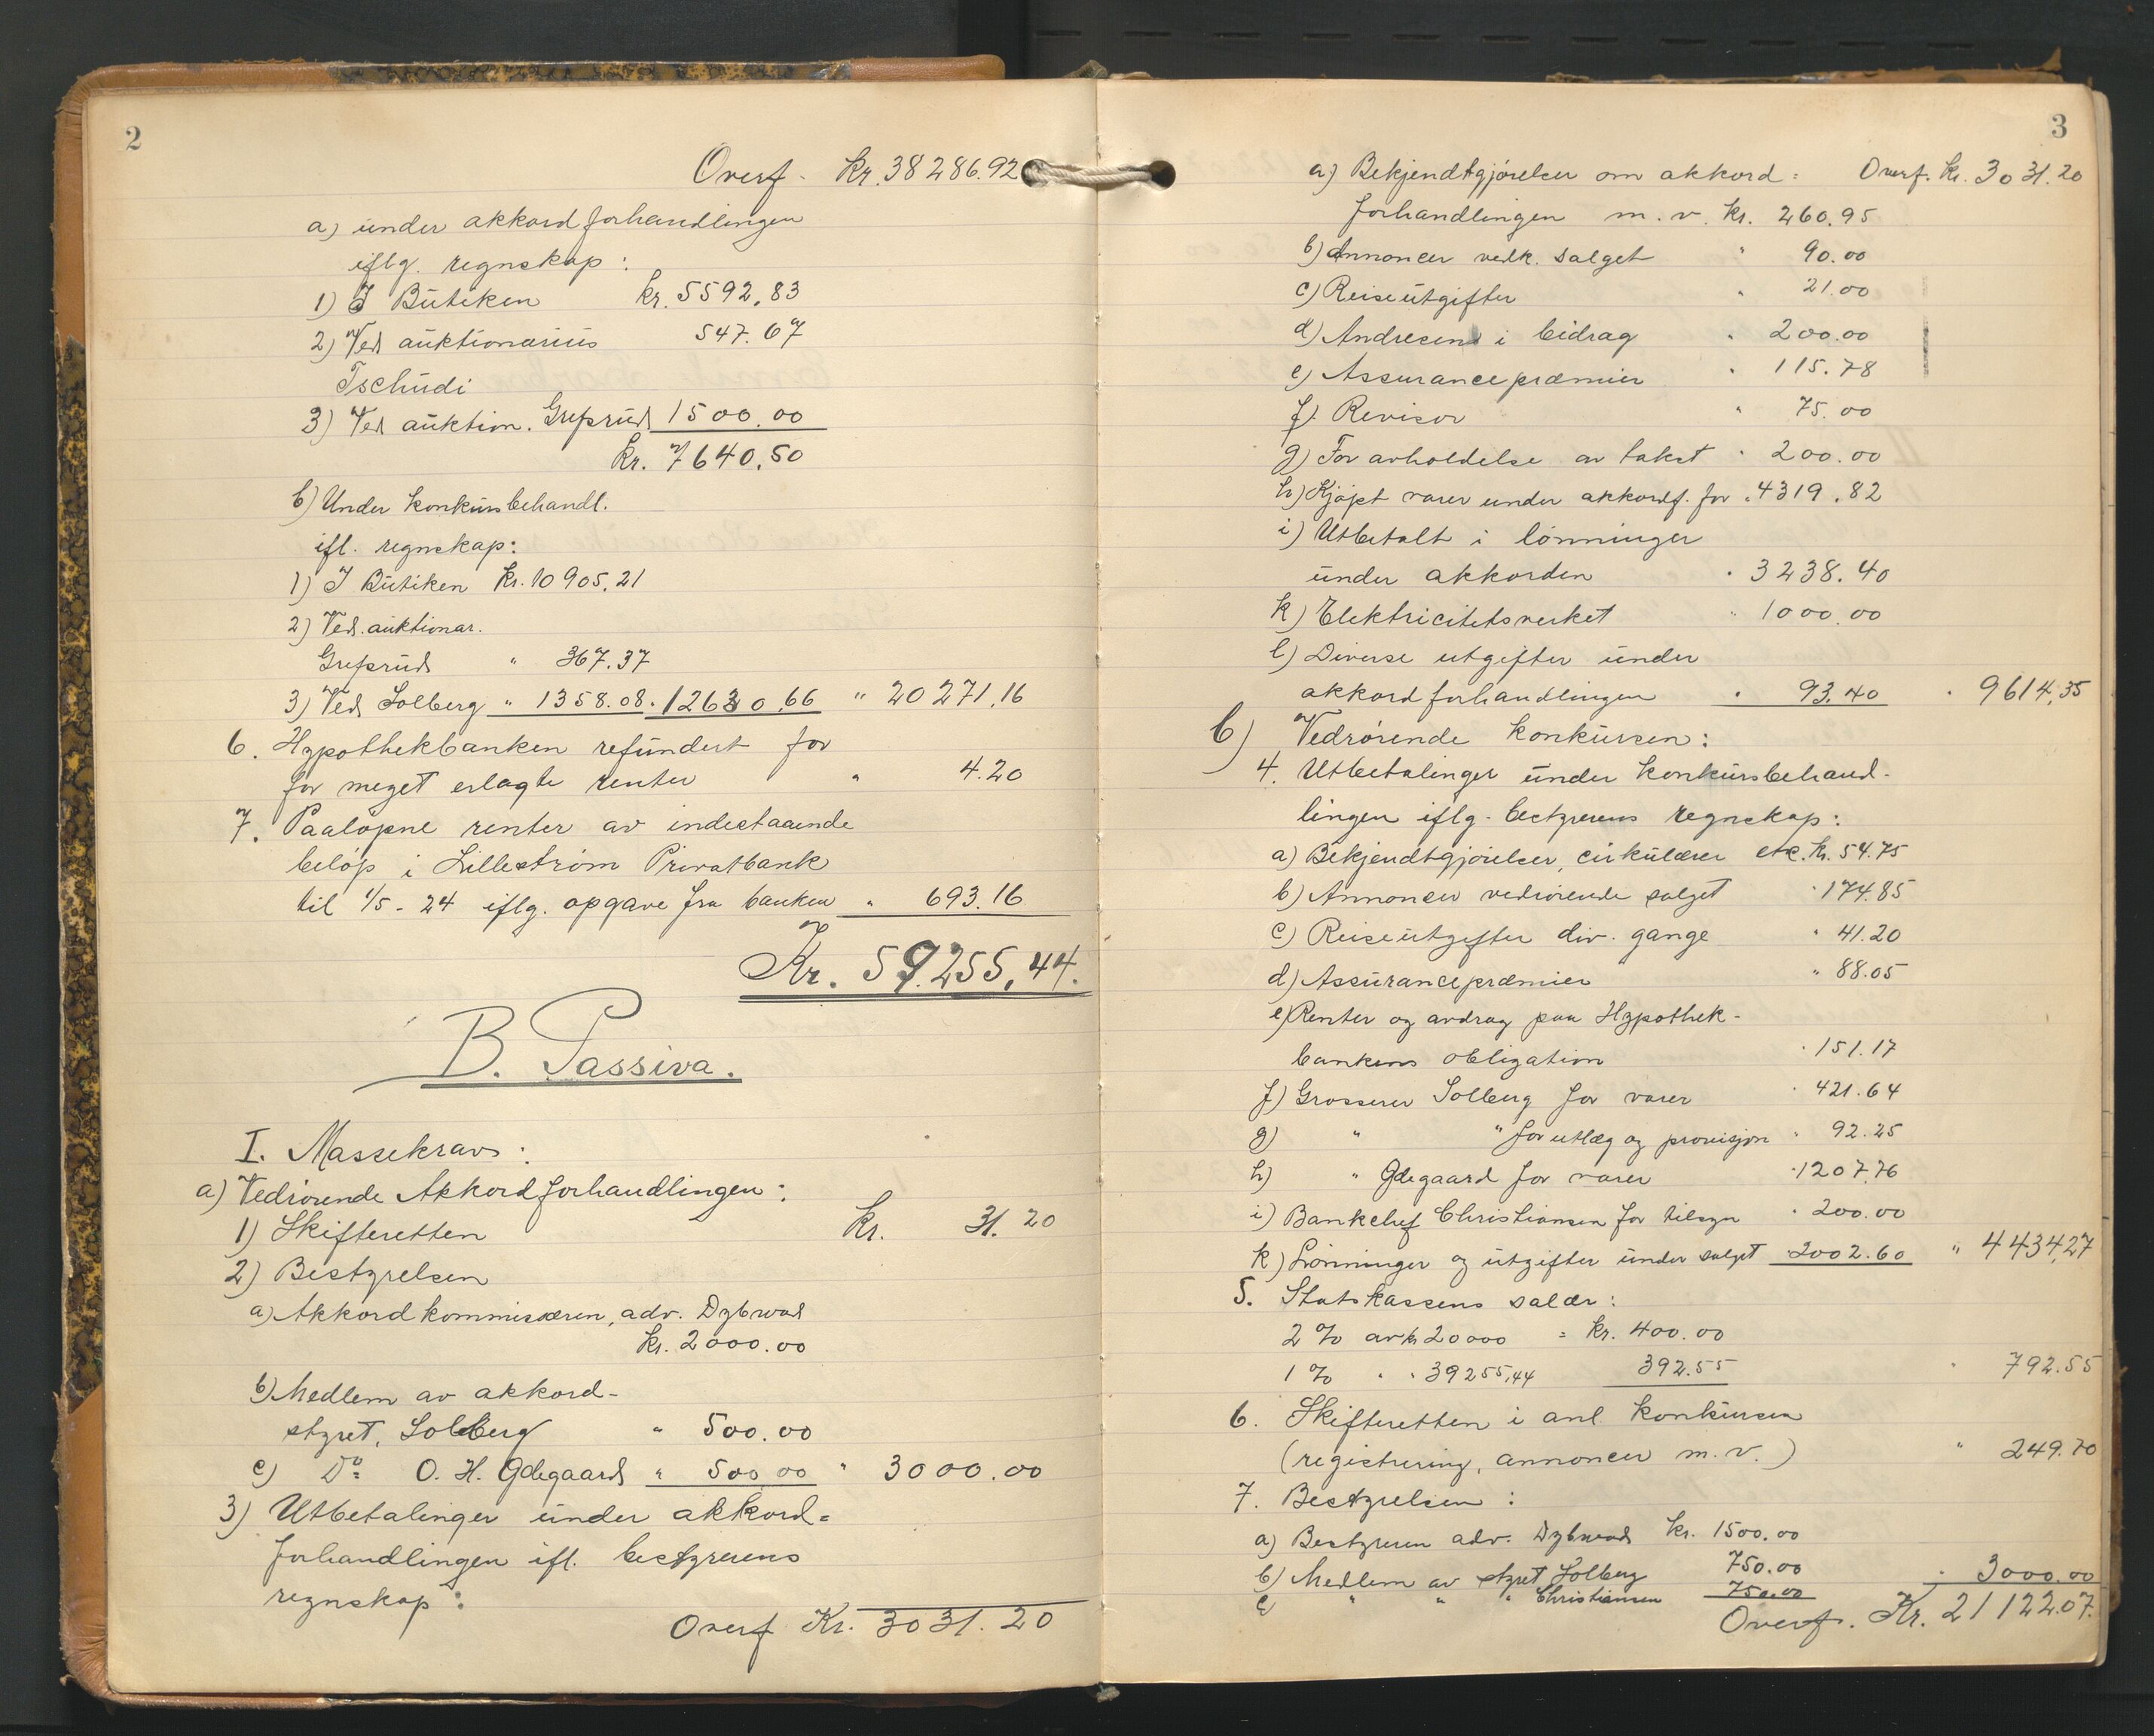 2
Overf. Kr. 38286.92
a) under akkordforhandlingen
iflg. regnskap:
1) I Butiken kr. 5592,83
2) Ved auktionarius 547.67
Tschudi
3) Ved auktion. Grefsrud 1500.00
Kr. 7640,50
b) Under konkursbehandl.
ifl. regnskap:
1) I Butiken Kr. 10905,21
2) Ved. auktionar.
Grefsrud " 367.37
3) Ved Solberg " 1358.08 " 12630,66 " 20271,16
6. Hypothekbanken refundert for
for meget erlagte renter " 4.20
7. Paaløpne renter av indestaaende
beløp i Lillestrøm Privatbank
til 1/5-24 iflg. opgave fra banken " 693.16
Kr. 59255,44.
B. Passiva.
I. Massekrav:
a) Vedrørende Akkordforhandlingen:
1) Skifteretten Kr. 31.20
2) Bestyrelsen
a) Akkordkommissæren, adv. Dybwad
kr. 2000.00
b) Medlem av akkord-
styret, Solberg " 500.00
c) Do: O. H. Ødegaard " 500.00 " 3000.00
3) Utbetalinger under akkord=
forhandlingen ifl. bestyrerens
regnskap:
Overf Kr. 3031.20
3
a) Bekjendtgjørelser om akkord= Overf. Kr. 3031.20
forhandlingen m.v. kr. 260.95
b) Annoncer vedk. salget " 90.00
c) Reiseutgifter " 21.00
d) Andresen i bidrag " 200.00
e) Assurancepræmier " 115.78
f) Revisor " 75.00
g) For avholdelse av takst " 200.00
h) Kjøpt varer under akkordf. for " 4319.82
i) Utbetalt i lønninger
under akkorden " 3238.40
k) Elektricitetsverket " 1000.00
l) Diverse utgifter under
akkordforhandlingen " 93,40 " 9614,35
b) Vedrørende konkursen:
4. Utbetalinger under konkursbehand-
lingen iflg. bestyrerens regnskap:
a) Bekjendtgjørelser, cirkulærer etc. kr. 54.75
b) Annoncer vedrørende salget " 174.85
c) Reiseutgifter div. gange " 41.20
d) Assurancepræmier " 88.05
e) Renter og avdrag paa Hypothek-
bankens obligation " 151.17
f) Grosserer Solberg for varer " 421.64
g) " " for utlæg og provisjon " 92.25
h) " Ødegaard for varer " 1207,76
i) Bankchef Christiansen for tilsyn " 200.00
k) Lønninger og utgifter under salget " 2002.60 " 4434,27
5. Statskassens salær:
2 % av kr 20000 = kr. 400.00
1 % " " 39255,44 392.55 " 792.55
6. Skifteretten i anl. konkursen
(registrering, annoncer m.v.) " 249.70
7. Bestyrelsen:
a) Bestyreren adv. Dybwad kr. 1500.00
b) Medlem av styret Solberg 750.00 " 3000.00
c) " " " Christiansen 750.00
Overf. Kr. 21122.07.